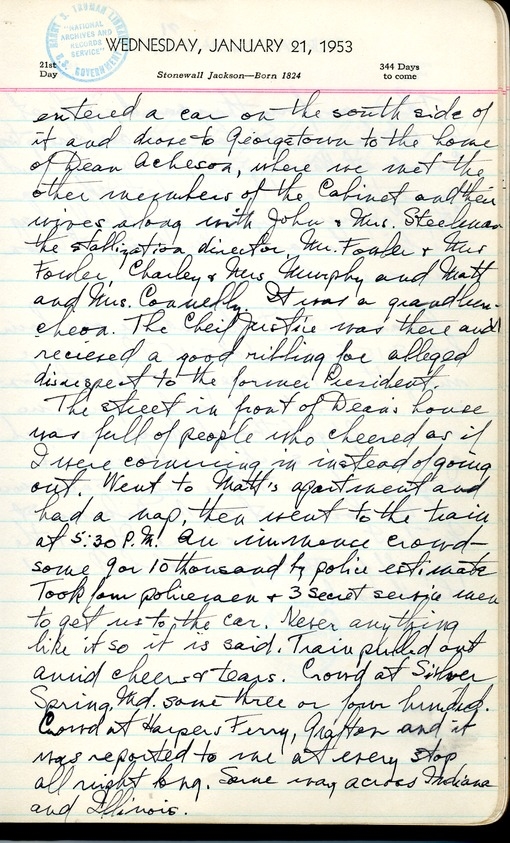 HARRY S. TRUMAN LIBRARY
"NATIONAL
ARCHIVES AND
RECORDS
SERVICE"
U.S. GOVERNMENT
WEDNESDAY, JANUARY 21, 1953
21st
Day
Stonewall Jackson—Born 1824
344 Days
to come
entered a car on the south side of
it and drove to Georgetown to the home
of Dean Acheson, where we met the
other members of the Cabinet and their
wives along with John & Mrs. Steelman
the stablization director, Mr. Fowler & Mrs
Fowler, Charley & Mrs Murphy and Matt
and Mrs. Connelly. It was a grand lun-
cheon. The Cheif Justice was there and
recieved a good ribbing for alleged
disrespect to the former President.
The street in front of Dean's house
was full of people who cheered as if
I were comming in instead of going
out. Went to Matt's apartment and
had a nap, then went to the train
at 5:30 P.M. An immence crowd-
some 9 or 10 thousand by police estimate
Took four policemen & 3 secret service men
to get us to the car. Never anything
like it so it is said. Train pulled out
amid cheers & tears. Crowd at Silver
Spring, Md. some three or four hundred.
Crowd at Harpers Ferry, Grafton and it
was reported to me at every stop
all night long. Same way across Indiana
and Illinois.